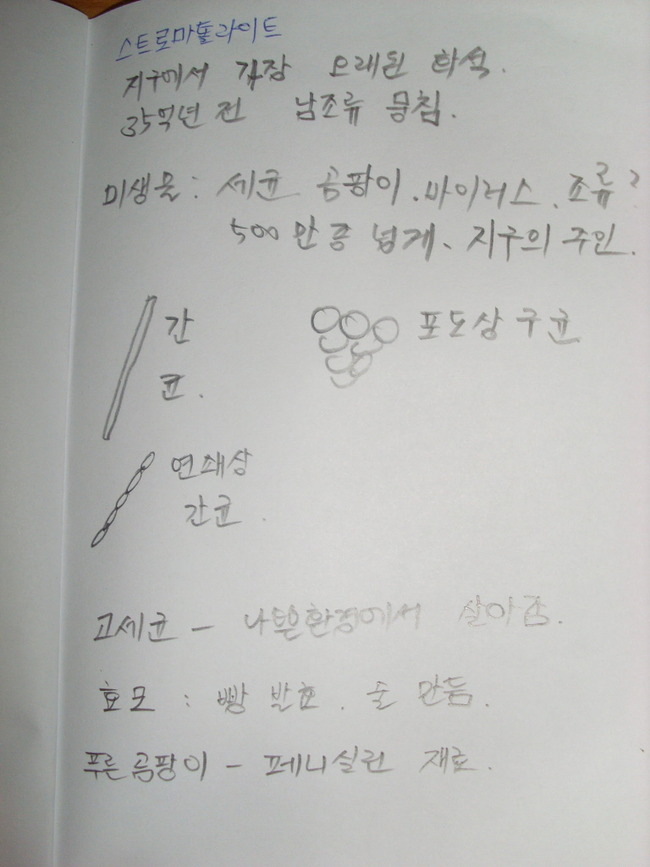 스트로마톨라이트
지구에서 가장 오래된 화석.
35억년 전 남조류 뭉침.
미생물 : 세균 곰팡이. 바이러스. 조류?
500만 종 넘게. 지구의 주인.
간
균.
포도상 구균
연쇄상
간균.
고세균 - 나쁜환경에서 살아감.
효모 : 빵 발효. 술 만듬.
푸른곰팡이 - 페니실린 재료.